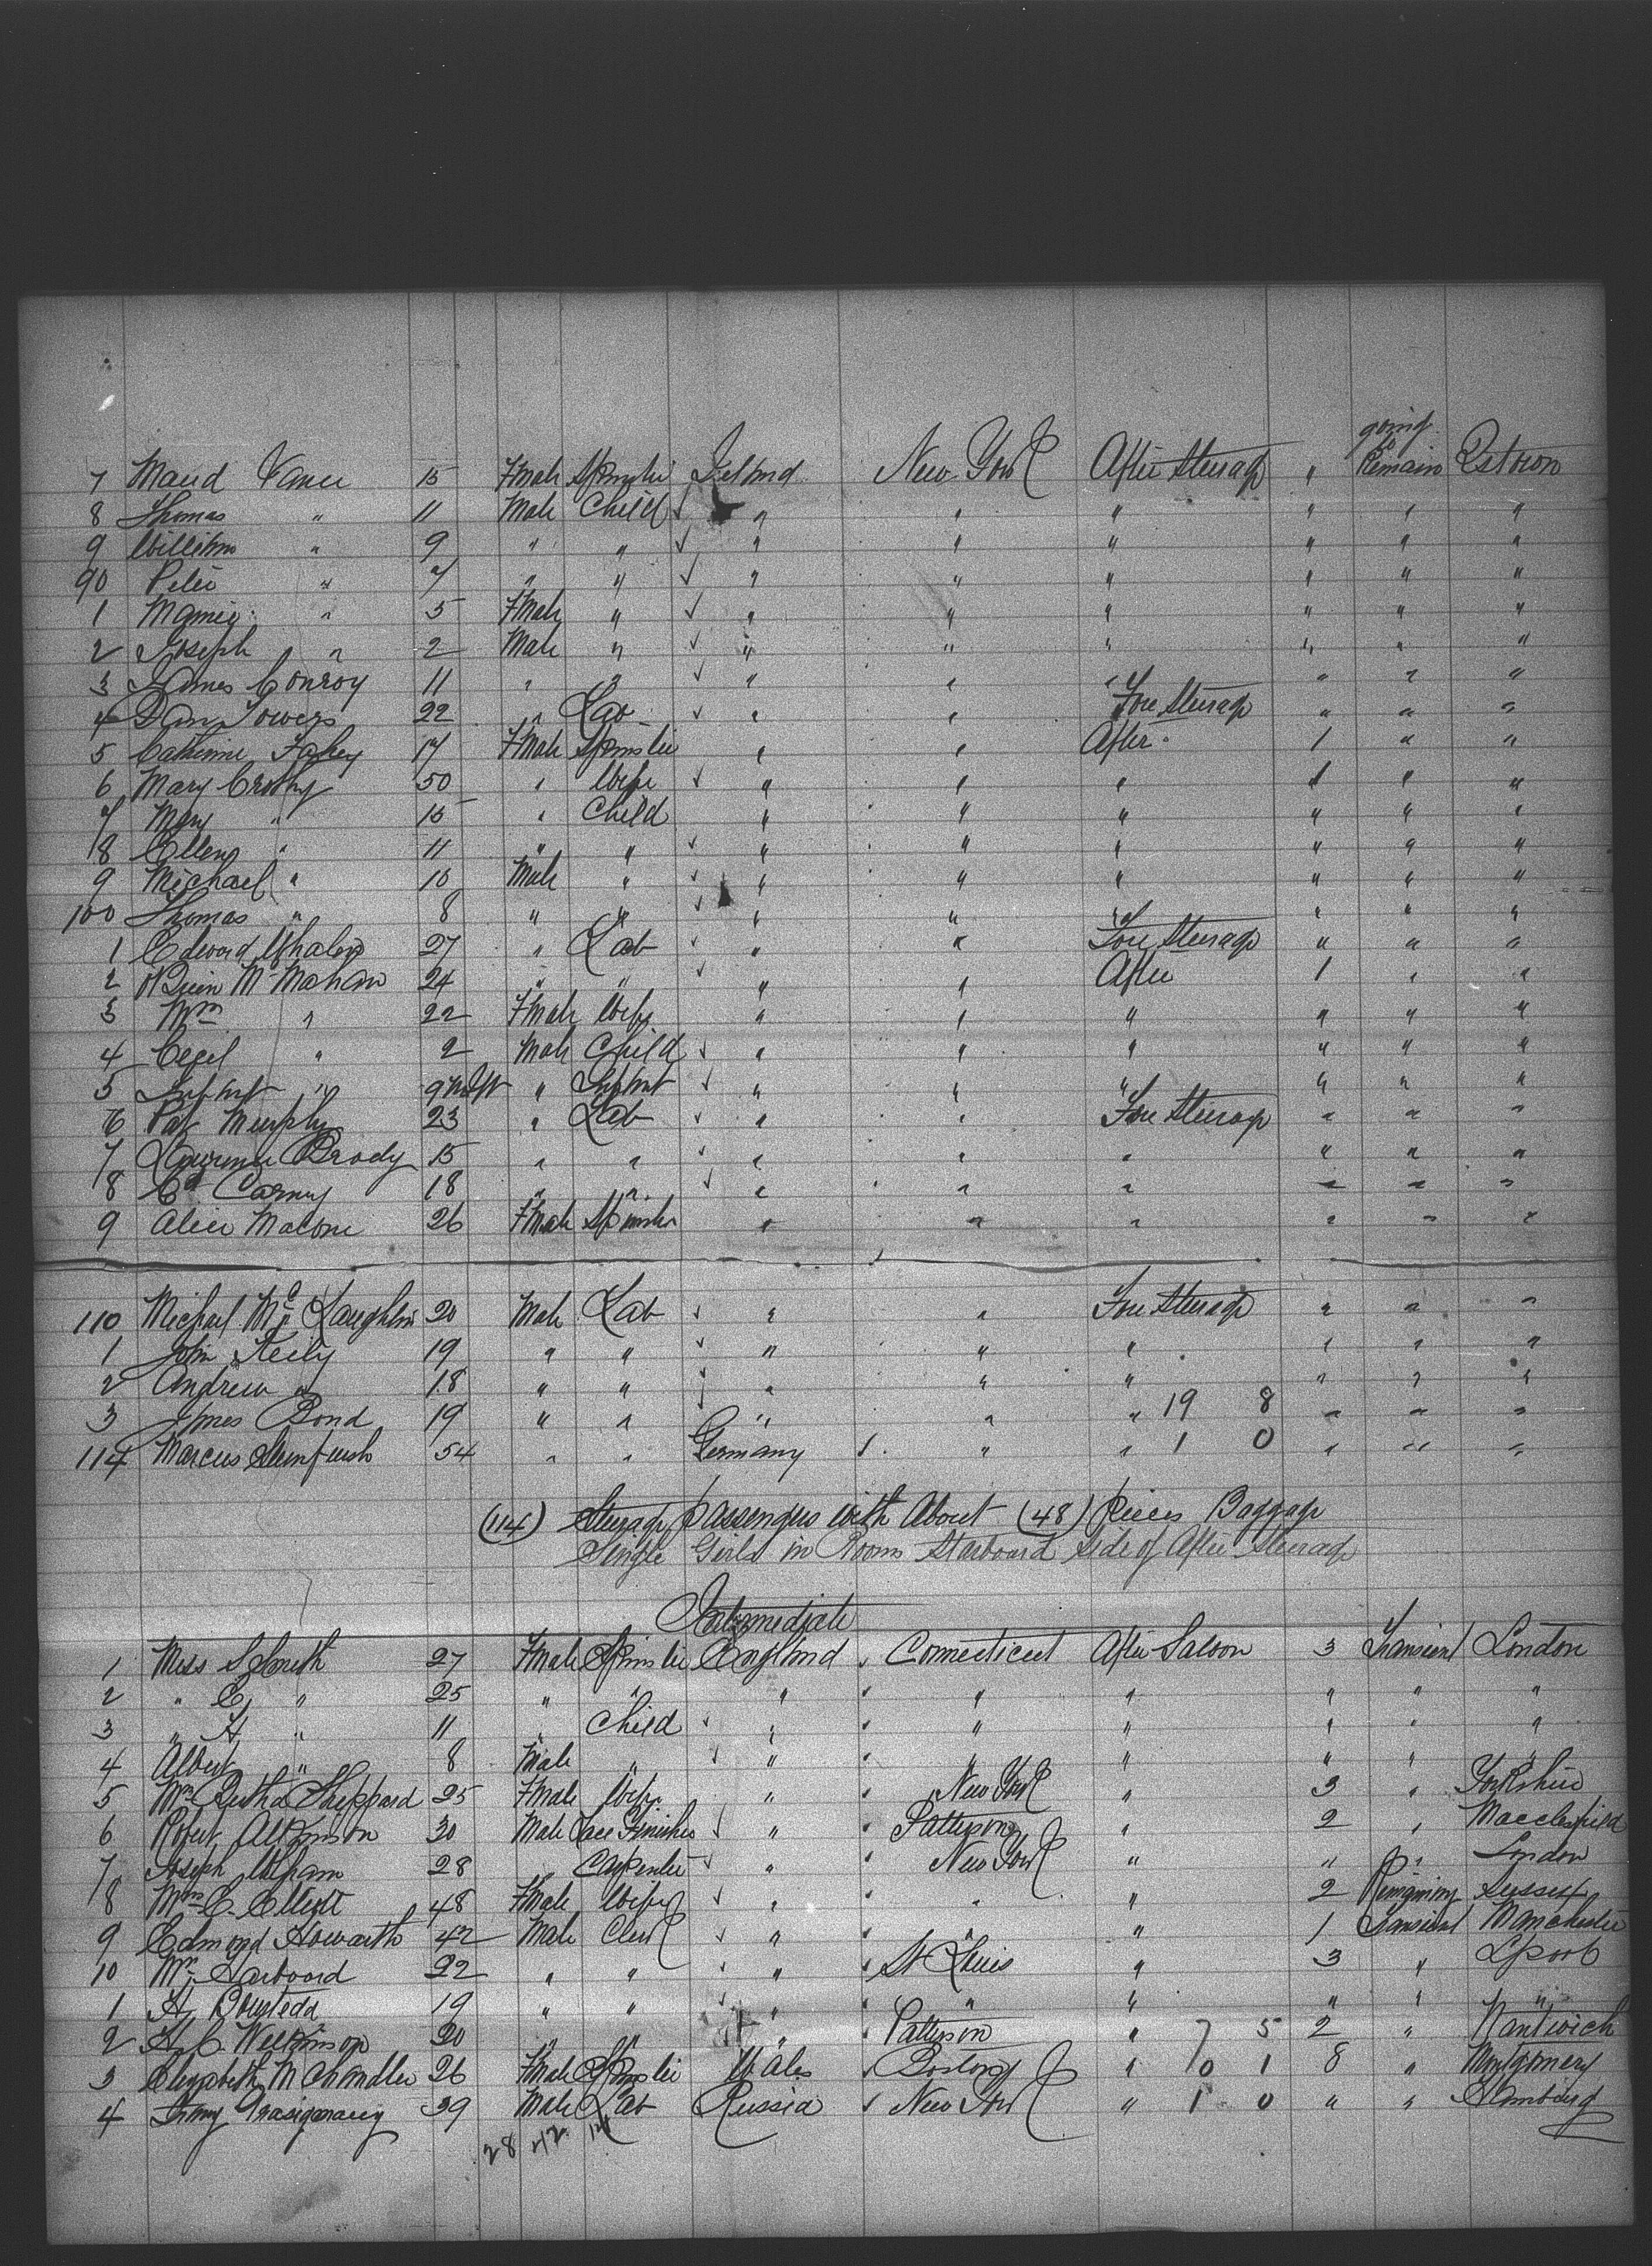 7 Maud Vance 15 Fmale Spinster Ireland New York After Steerage " going to Remain Qstown
8 Thomas " 11 Male Child " " " " " "
9 William " 9 " " " " " " " "
90 Peter " 7 " " " " " " " "
1 Mamie " 5 Fmale " " " " " " "
2 Joseph " 2 Male " " " " " " "
3 James Conroy 11 " " " " " " " "
4 Dan Towers 22 " Lab " " Fore Steerage " " "
5 Catherine Fahey 17 Fmale Spinster " " After " 1 " "
6 Mary Crosby 50 " Wife " " " 1 " "
7 Mary " 15 " Child " " " " " "
8 Ellen " 11 " " " " " " " "
9 Michael " 10 Male " " " " " " "
100 Thomas " 8 " " " " " " " "
1 Edward Whalen 27 " Lab " " Fore Steerage " " "
2 McMahan 24 " " " " After 1 " "
3 Mrs " 22 Fmale Wife " " " " " "
4 Cecil " 2 Male Child " " " " " "
5 Infant " 9 " Infant " " " " " "
6 Pat Murphy 23 " Lab " " Fore Steerage " " "
7 Lawrence Brody 15 " " " " " " " "
8 Ed Carny 18 " " " " " " " "
9 Alice Malone 26 Fmale Spinster " " " " " "
110 Michael McLaughlin 20 Male Lab " " Fore Steerage " " "
1 John Keily 19 " " " " " " " "
2 Andrew " 18 " " " " " " " "
3 James Bond 19 " " " " " 19 8 " " "
114 Marcus 54 " " Germany " " 1 0 " " "
(114) Steerage passengers with About (48) Pieces Baggage
Single Girls in Room Starboard side of After Steerage
Intermediate
1 Miss S Smith 27 Fmale Spinster England Connecticut After Saloon 3 Transient London
2 " E " 25 " " " " " " " "
3 " A " 11 " Child " " " " " "
4 Albert " 8 Male " " " " " " "
5 Mrs Sheppard 25 Fmale Wife " New York " 3 " Yorkshire
6 Robert Atkinson 30 Male Lace Finisher " Patterson " 2 " Macclesfield
7 Joseph 28 Carpenter " New York " " " London
8 Mrs C. Elliott 48 Fmale Wife " " " 2 Remaining Sussex
9 Edmond Howarth 42 Male Clerk " " " 1 Transient Manchester
10 Wm Harbord 22 " " " St Louis " 3 " Lpool
1 H. 19 " " " " " " " "
2 H. C. Wilkinson 20 " " " Patterson " 7 5 2 " Nantwich
3 Elizabeth M Chandler 26 Fmale Spinster Wales Boston " 0 1 8 " Montgomery
4 39 Male Lab Russia New York " 1 0 " " Hamburg
28 42 14